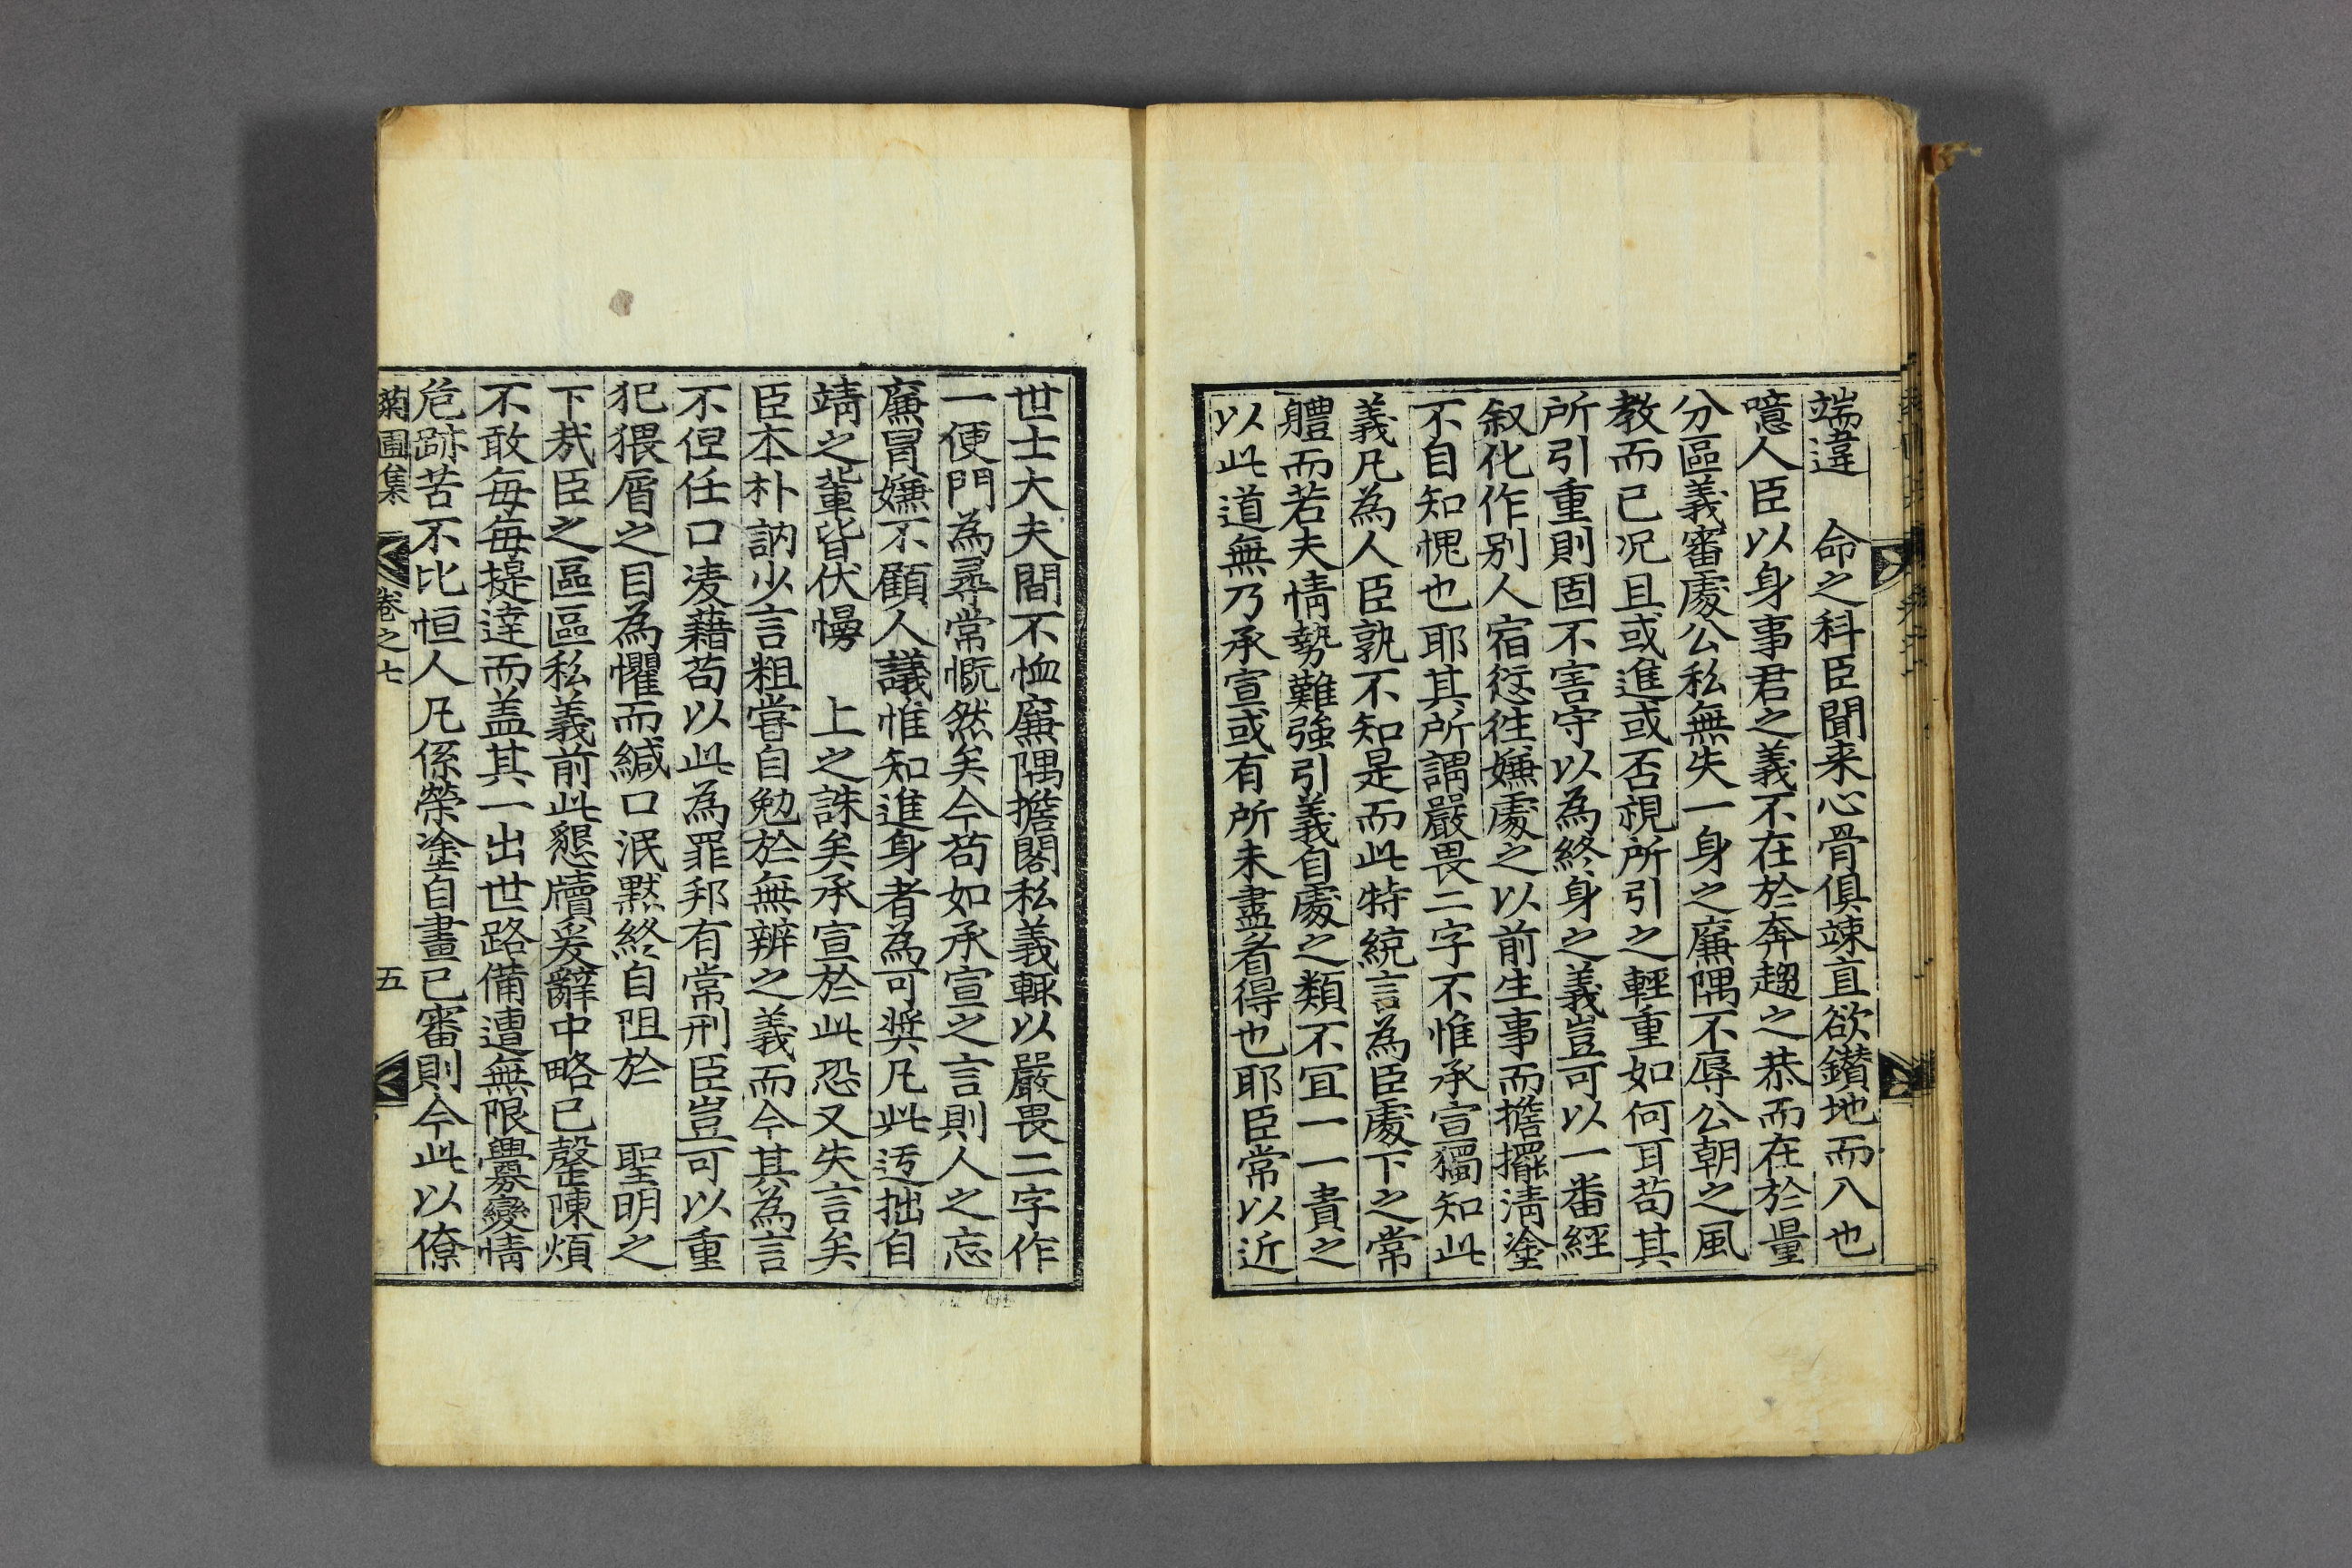 端違　命之科臣聞来心骨俱竦直欲鑚地而入也
噫人臣以身事君之義不在於奔趨之恭而在於量
分區義審處公私無失一身之廉隅不辱公朝之風
教而已况且或進或否視所引之輕重如何耳苟其
所引重則固不害守以為終身之義豈可以一番經
叙化作别人宿愆徃嫌處之以前生事而擔擺淸塗
不自知愧也耶其所謂嚴畏二字不惟承宣獨知此
義凡為人臣孰不知是而此特統言為臣處下之常
軆而若夫情勢難強引義自處之類不冝一一責之
以此道無乃承宣或有所未盡看得也耶臣常以近
世士大夫間不恤廉隅擔閣私義輒以嚴畏二字作
一便門為尋常慨然矣今苟如承宣之言則人之忘
廉冒嫌不顧人議惟知進身者為可奬凡此迃拙自
靖之輩皆伏慢　上之誅矣承宣於此恐又失言矣
臣本朴訥少言粗甞自勉於無辨之義而今其為言
不但任口凌藉苟以此為罪邦有常刑臣豈可以重
犯猥屑之目為懼而緘口泯默終自阻於　聖明之
下㦲臣之區區私義前此懇牘爰辭中略已罄陳煩
不敢每每提達而盖其一出世路備遭無限釁變情
危跡苦不比恒人凡係榮塗自畫已審則今此以僚
菊圃集　卷之七　五